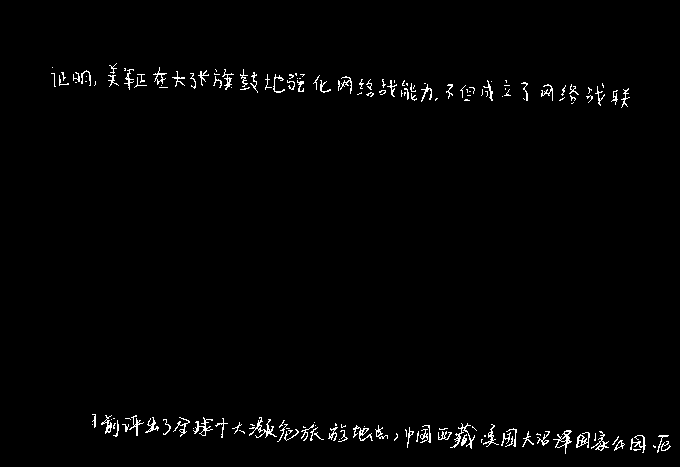 证明,美军正在大张旗鼓地强化网络战能力,不但成立了网络战联
前评出了全球十大濒危旅游地点,中国西藏、美国大沼泽国家公园、厄